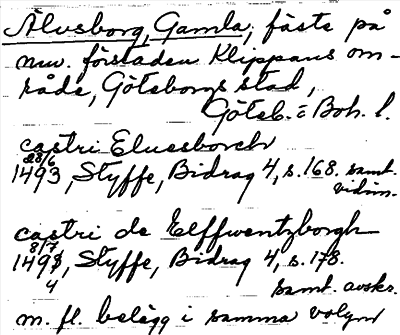 Älvsborg, Gamla, fäste på
nuv. förstaden Klippans om-
råde, Göteborgs stad,
Göteb. o Boh. l.
castri Elvssborch
28/6
1493, Styffe, Bidrag 4, s. 168. samt.
vidim.
castri de Elffwentzborgh
8/7
1494, Styffe, Bidrag 4, s. 178.
4
samt. avskr.
m. fl. belägg i samma volym